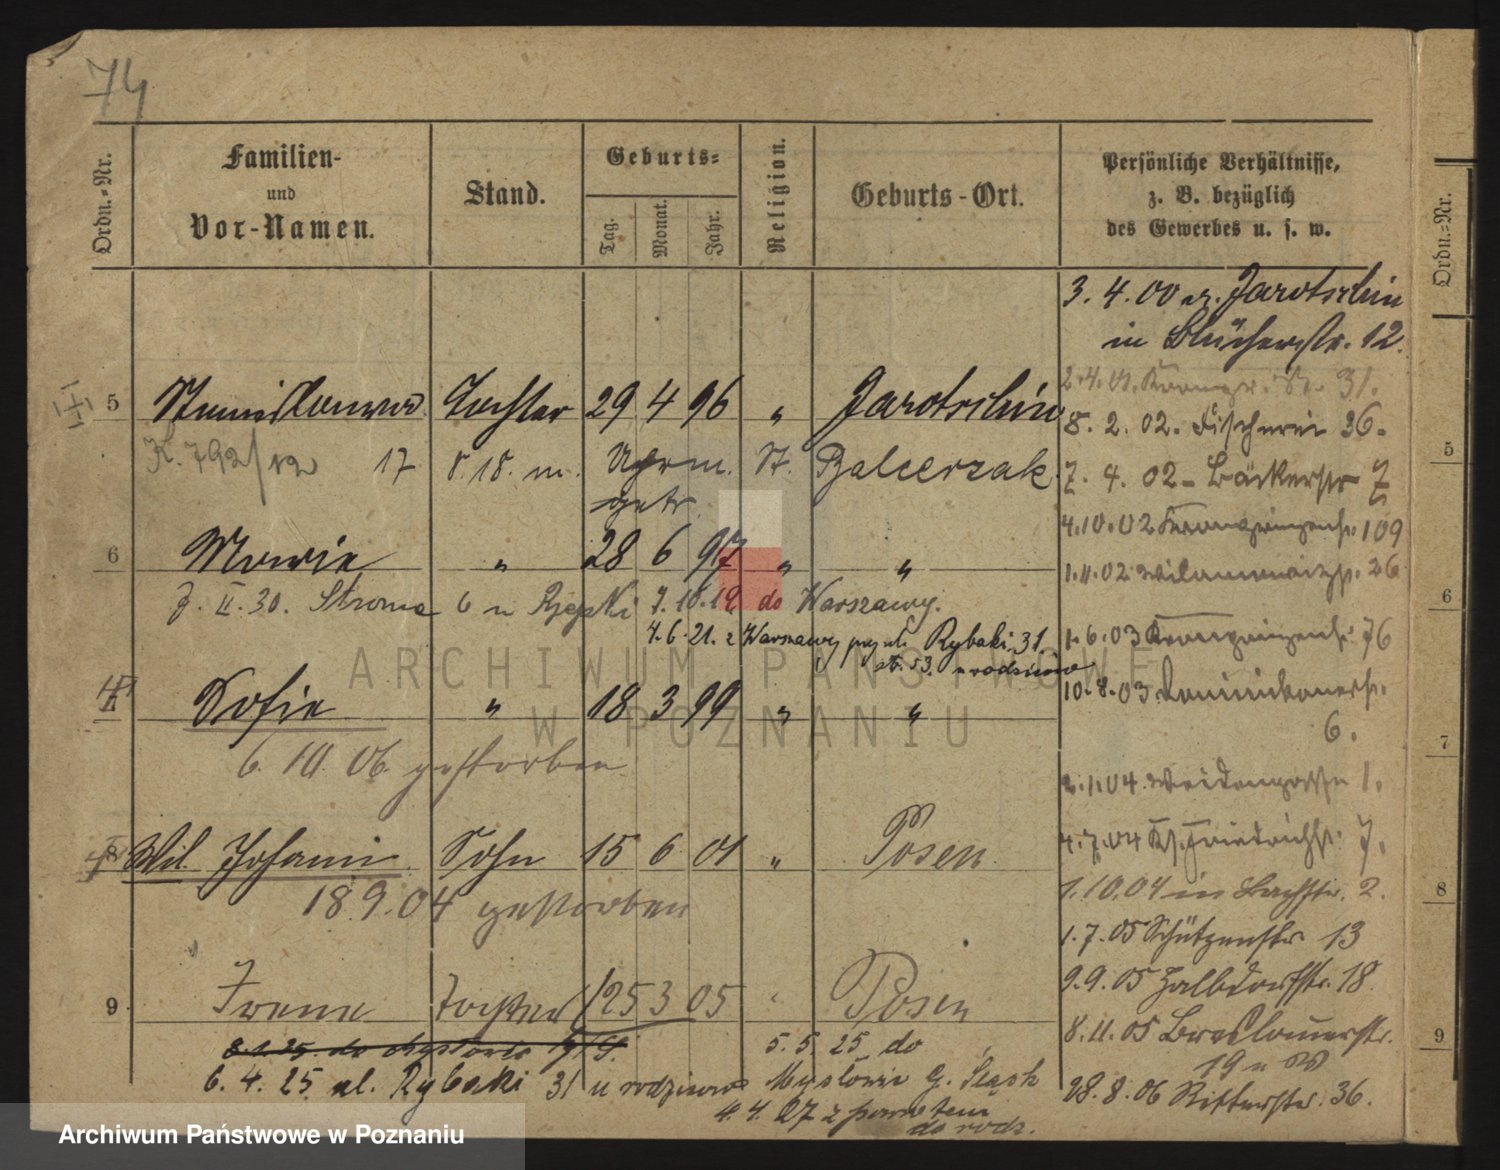 74
Ordn.-Nr.
Familien-
und
Vor-Namen.
Stand.
Geburts-
Tag.
Monat.
Jahr.
Religion.
Geburts-Ort.
Persönliche Verhältnisse,
z. B. bezüglich
des Gewerbes u. s. w.
3. 4. 00 v. Jarotschin
in Blücherstr. 12.
5 Stanislawa Tochter 29 4 96 " Jarotschin
2. 4. 01. 31.
8. 2. 02. Fischerei 36.
K. 792/12 17 Balcerzak
7. 4. 02 - Bäckerstr 7
4. 10. 02 Kronprinzenstr. 109
6 Marie " 28 6 97 " "
1. 11. 02 26
7. II. 30. Stroma 6 u Rzepki 7. 10. 19 do Warszawy.
4. 6. 21. z Warszawy ul. Rybaki 31.
1. 6. 03 Kronprinzenstr. 76
10. 8. 03 Dominikanerstr.
6.
Sofie " 18 3 99 " "
6. 10. 06. gestorben
2. 1. 04. Weidengasse 1.
Wil. Johann Sohn 15 6 01 " Posen
4. 7. 04 Kl. Friedrichstr. 7.
18. 9. 04 gestorben
1. 10. 04 in Bachstr. 2.
1. 7. 05 Schützenstr 13
9. 9. 05 Halbdorfstr. 18.
9 Irene Tochter 25 3 05 " Posen
8. 11. 05 Breslauerstr.
19
5. 5. 25 do
6. 4. 25 ul. Rybaki 31 u rodziców Mysłowic G. Śląsk
28. 8. 06 Ritterstr. 36.
4. 4. 27 z powrotem
do rodz.
Ordn.-Nr.
5
6
7
8
9
ARCHIWUM PAŃSTWOWE
W POZNANIU
Archiwum Państwowe w Poznaniu